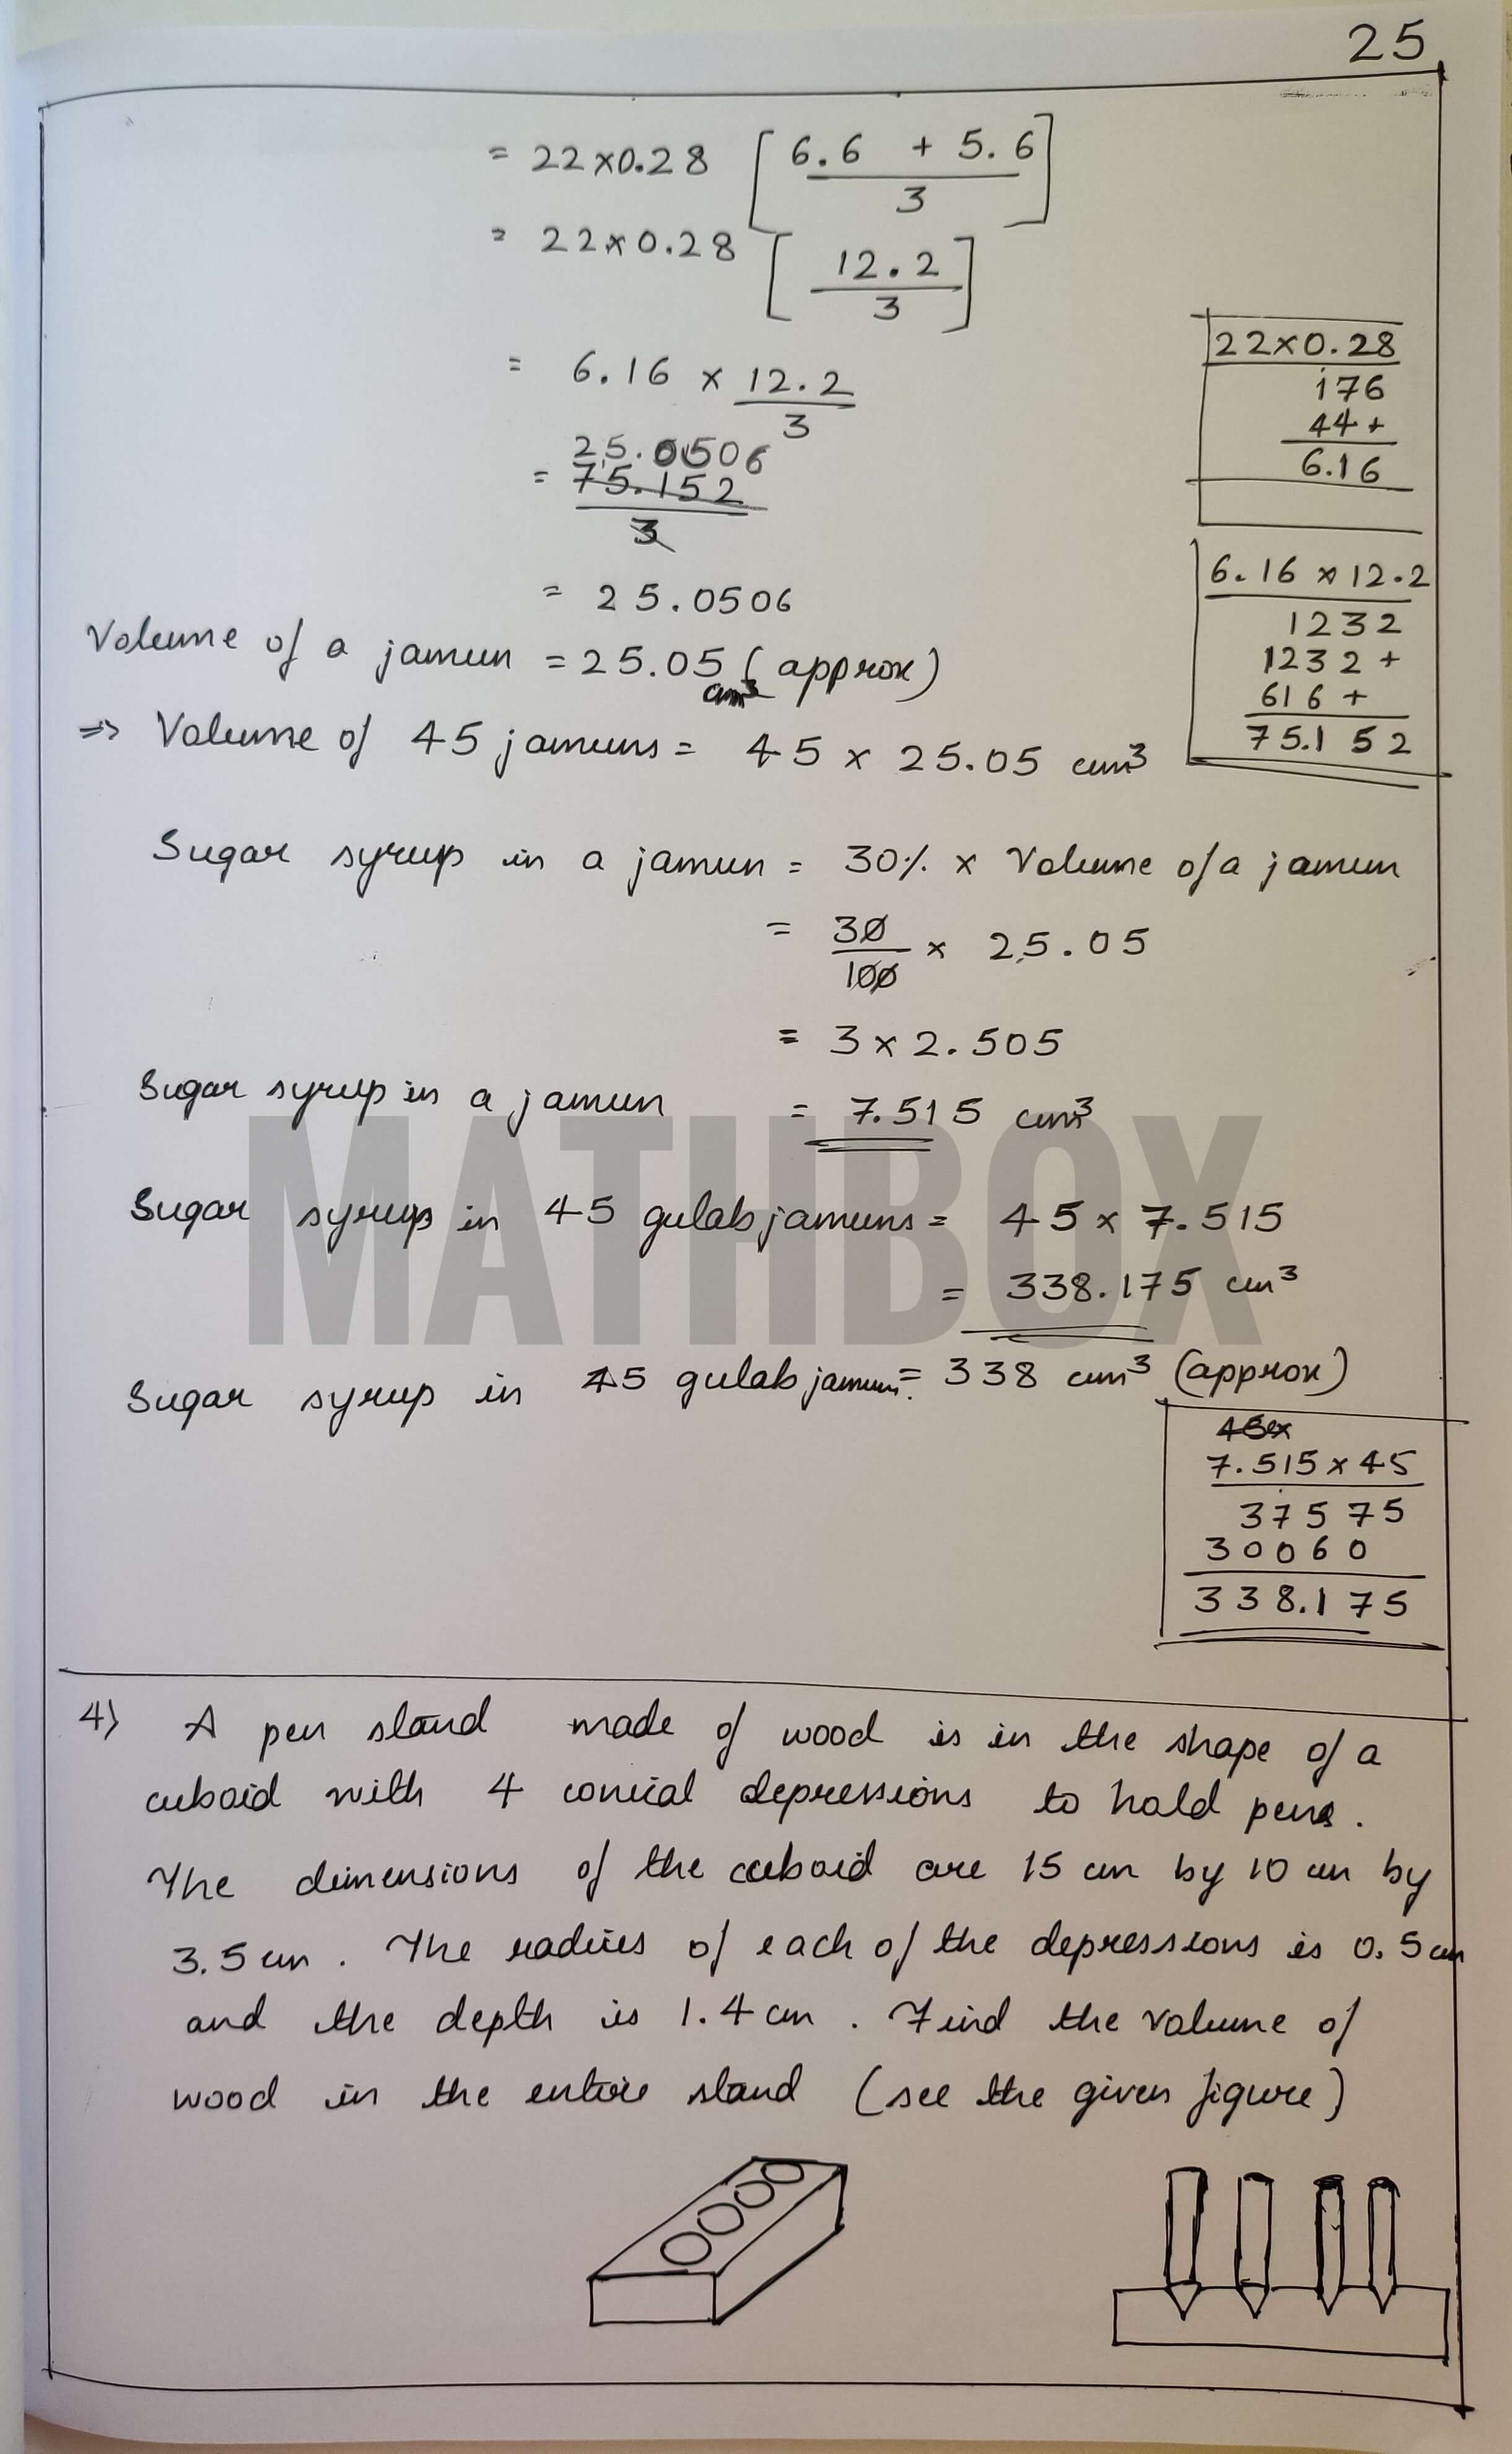 25
= 22×0.28 [ 6.6 + 5.6
3 ]
= 22×0.28 [ 12.2
3 ]
= 6.16 × 12.2
3
25.0506
= 75.152
3
= 25.0506
22×0.28
176
44+
6.16
6.16×12.2
1232
1232+
616+
75.152
Volume of a jamun = 25.05 (approx)
cm³
=> Volume of 45 jamuns = 45 × 25.05 cm³
Sugar syrup in a jamun = 30% × Volume of a jamun
= 30
100 × 25.05
= 3×2.505
Sugar syrup in a jamun = 7.515 cm³
MATHBOX
Sugar syrup in 45 gulab jamuns = 45×7.515
= 338.175 cm³
Sugar syrup in 45 gulab jamuns = 338 cm³ (approx)
45×
7.515×45
37575
30060
338.175
4) A pen stand made of wood is in the shape of a
cuboid with 4 conical depressions to hold pens.
The dimensions of the cuboid are 15 cm by 10 cm by
3.5 cm. The radius of each of the depressions is 0.5 cm
and the depth is 1.4 cm. Find the volume of
wood in the entire stand (see the given figure)